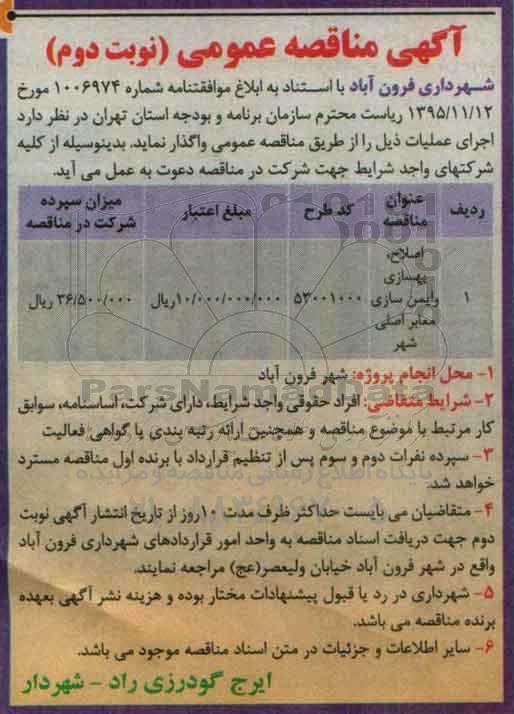 آگهی مناقصه عمومی (نوبت دوم)
شهرداری فرون آباد با استناد به ابلاغ موافقتنامه شماره ۱۰۰۶۹۷۴ مورخ
۱۳۹۵/۱۱/۱۲ ریاست محترم سازمان برنامه و بودجه استان تهران در نظر دارد
اجرای عملیات ذیل را از طریق مناقصه عمومی واگذار نماید. بدینوسیله از کلیه
شرکتهای واجد شرایط جهت شرکت در مناقصه دعوت به عمل می آید.
ردیف عنوان مناقصه کد طرح مبلغ اعتبار میزان سپرده شرکت در مناقصه
۱ اصلاح، بهسازی وایمن سازی معابر اصلی شهر ۵۳۰۰۱۰۰۰ ۱۰/۰۰۰/۰۰۰/۰۰۰ریال ۳۶/۵۰۰/۰۰۰ ریال
۱- محل انجام پروژه: شهر فرون آباد
ParsNamadData
۲- شرایط متقاضی: افراد حقوقی واجد شرایط، دارای شرکت، اساسنامه، سوابق
کار مرتبط با موضوع مناقصه و همچنین ارائه رتبه بندی یا گواهی فعالیت
۳- سپرده نفرات دوم و سوم پس از تنظیم قرارداد با برنده اول مناقصه مسترد
پایگاه اطلاع رسانی مناقصه و مزایده
خواهد شد.
۴- متقاضیان می بایست حداکثر ظرف مدت ۱۰روز از تاریخ انتشار آگهی نوبت
دوم جهت دریافت اسناد مناقصه به واحد امور قراردادهای شهرداری فرون آباد
واقع در شهر فرون آباد خیابان ولیعصر(عج) مراجعه نمایند.
۵- شهرداری در رد یا قبول پیشنهادات مختار بوده و هزینه نشر آگهی بعهده
برنده مناقصه می باشد.
۶- سایر اطلاعات و جزئیات در متن اسناد مناقصه موجود می باشد.
ایرج گودرزی راد - شهردار